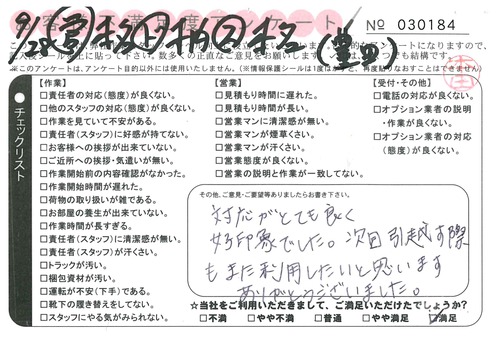 お客様満足度アンケート
No 030184
※このアンケートは、アンケート目的以外には使用いたしません。(※情報保護シールは1度はがすと、再度貼りなおすことはできません)
チェックリスト
【作業】
□責任者の対応(態度)が良くない。
□他のスタッフの対応(態度)が良くない。
□作業を見ていて不安がある。
□責任者(スタッフ)に好感が持てない。
□お客様への挨拶が出来ていない。
□ご近所への挨拶・気遣いが無い。
□作業開始前の内容確認がなかった。
□作業開始時間が遅れた。
□荷物の取り扱いが雑である。
□お部屋の養生が出来ていない。
□作業時間が長すぎる。
□責任者(スタッフ)に清潔感が無い。
□責任者(スタッフ)が汗くさい。
□トラックが汚い。
□梱包資材が汚い。
□運転が不安(下手)である。
□靴下の履き替えをしてない。
□スタッフにやる気がみられない。
【営業】
□見積もり時間に遅れた。
□見積もり時間が長い。
□営業マンに清潔感が無い。
□営業マンが煙草くさい。
□営業マンが汗くさい。
□営業態度が良くない。
□営業の説明と作業が一致してない。
【受付・その他】
□電話の対応が良くない。
□オプション業者の説明
・作業が良くない。
□オプション業者の対応
(態度)が良くない。
その他、ご意見・ご要望等ありましたらお書き下さい。
対応がとても良く
好印象でした。次回引越す際
もまた利用したいと思います
ありがとうございました。
☆当社をご利用いただきまして、ご満足いただけたでしょうか?
□不満 □やや不満 □普通 □やや満足 ☑満足